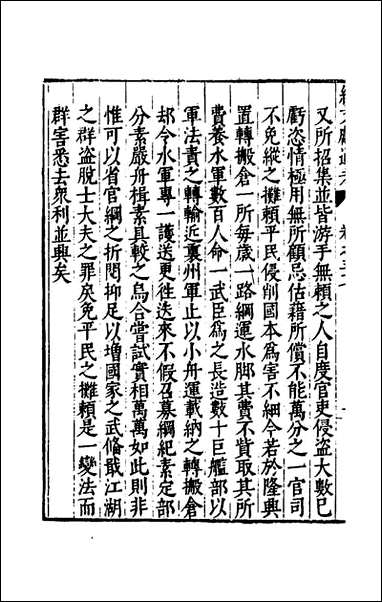 又所招集並皆游手無賴之人自度官吏侵盜大數已
虧恣情極用無所顧忌估籍所償不能萬分之一官司
不免縱之攤賴平民侵削國本為害不細今若於隆興
置轉搬倉一所每歲一路綱運水脚其費不貲取其所
費養水軍數百人命一武臣為之長造數十巨艦部以
軍法責之轉輸近裏州軍止以小舟運載納之轉搬倉
却令水軍專一護送更往迭來不假召募綱紀素定部
分素嚴舟楫素具較之烏合嘗試實相萬萬如此則非
惟可以省官綱之折閱抑足以增國家之武備戢江湖
之群盜脫士大夫之罪戾免平民之攤賴是一變法而
群害悉去衆利並興矣